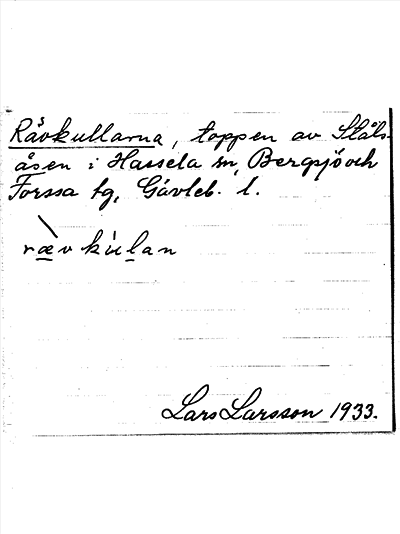 Rävkullarna, toppen av Ståls-
åsen i Hassela sn, Bergsjö och
Forssa tg, Gävleb. l.
rævkùlan
Lars Larsson 1933.